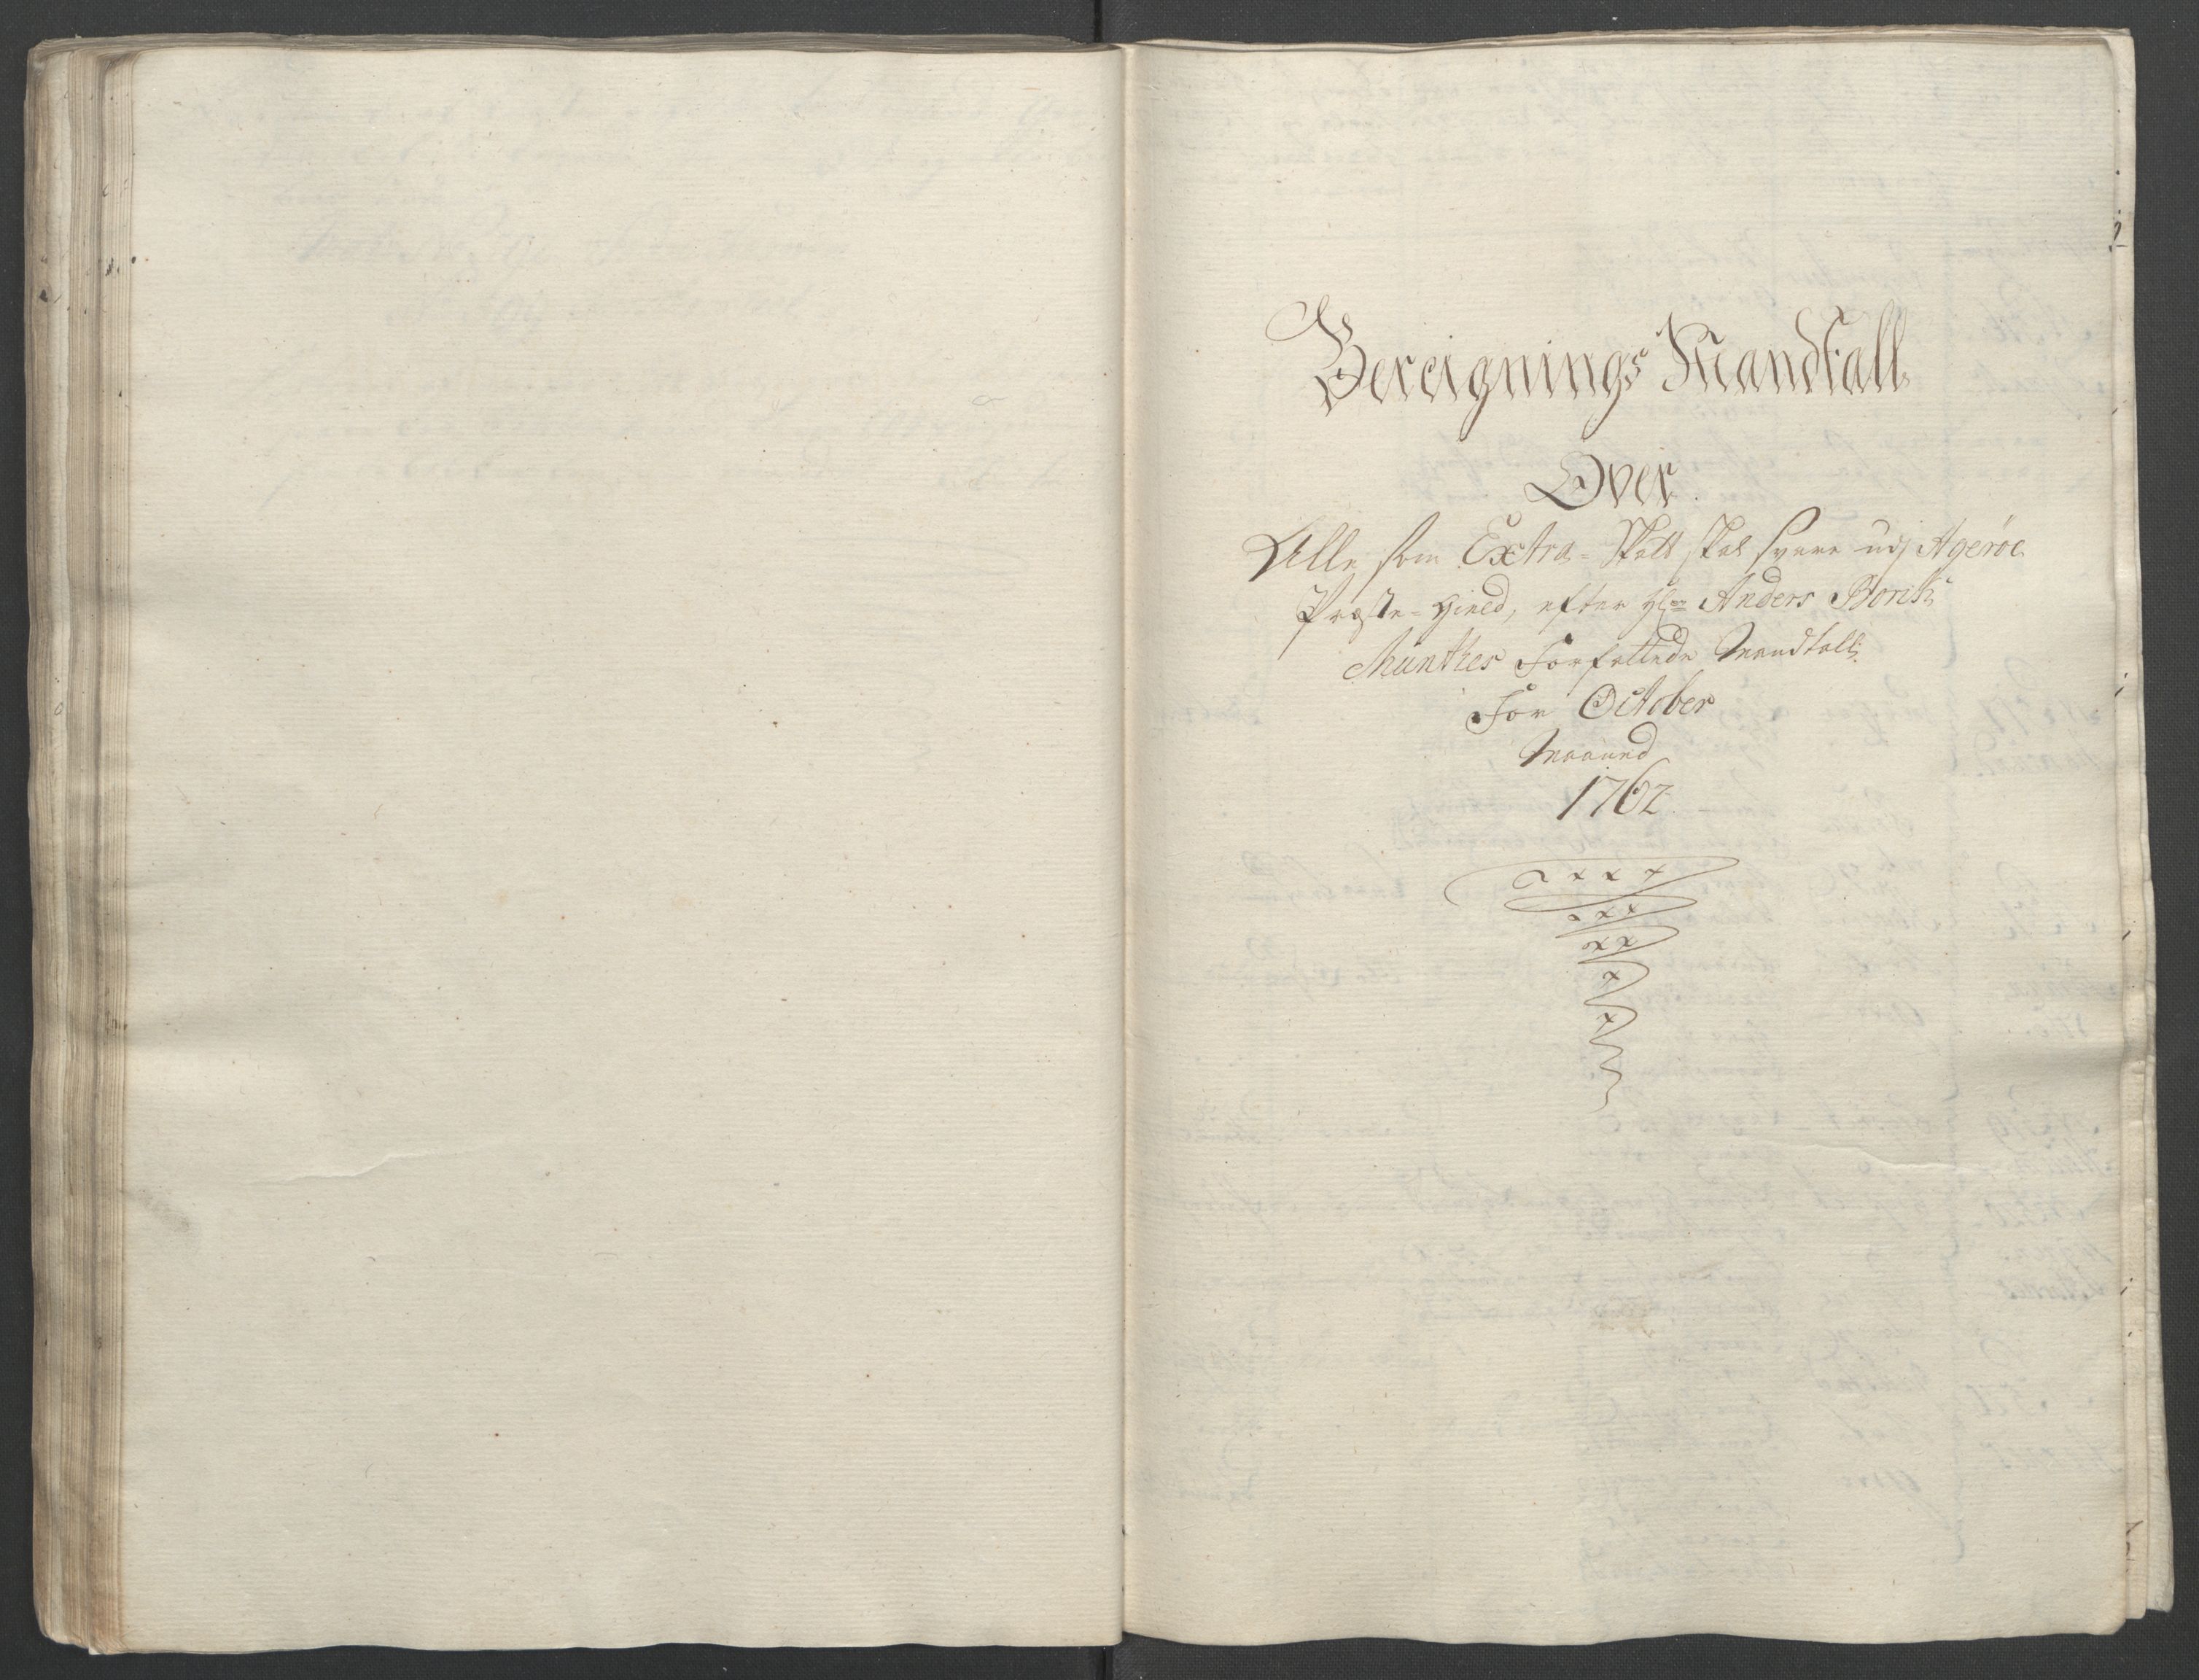 Bereignings Mandtall
Over.
Alle som Extra-Skatt skal svare udj Agerøe
Præste-Gield, efter Hr Anders Borith
Munthes Forfattede Mandtall
For October
Maaned
1762